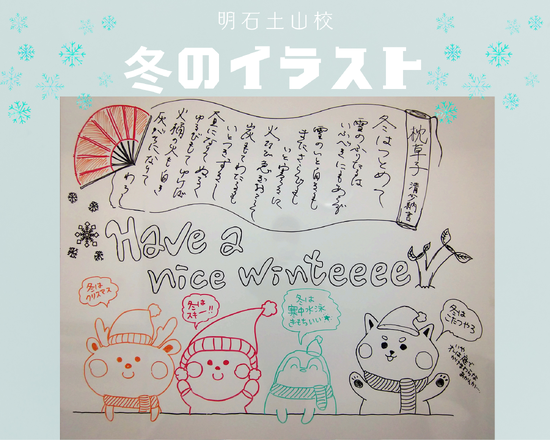 明石土山校
冬のイラスト
枕草子 清少納言
冬はつとめて
雪のふりたるは
いふべきにもあらず
霜のいと白きも
またさらでも
いと寒きに
火など急ぎおこして
炭もてわたるも
いとつきづきし
昼になりて ぬるく
ゆるびもて ゆけば
火桶の火も 白き
灰がちになりて
わろし
Have a
nice winteeeer
冬は
クリスマス
冬は
スキー!!
冬は
寒中水泳
きもちいい★
冬は
こたつやろ